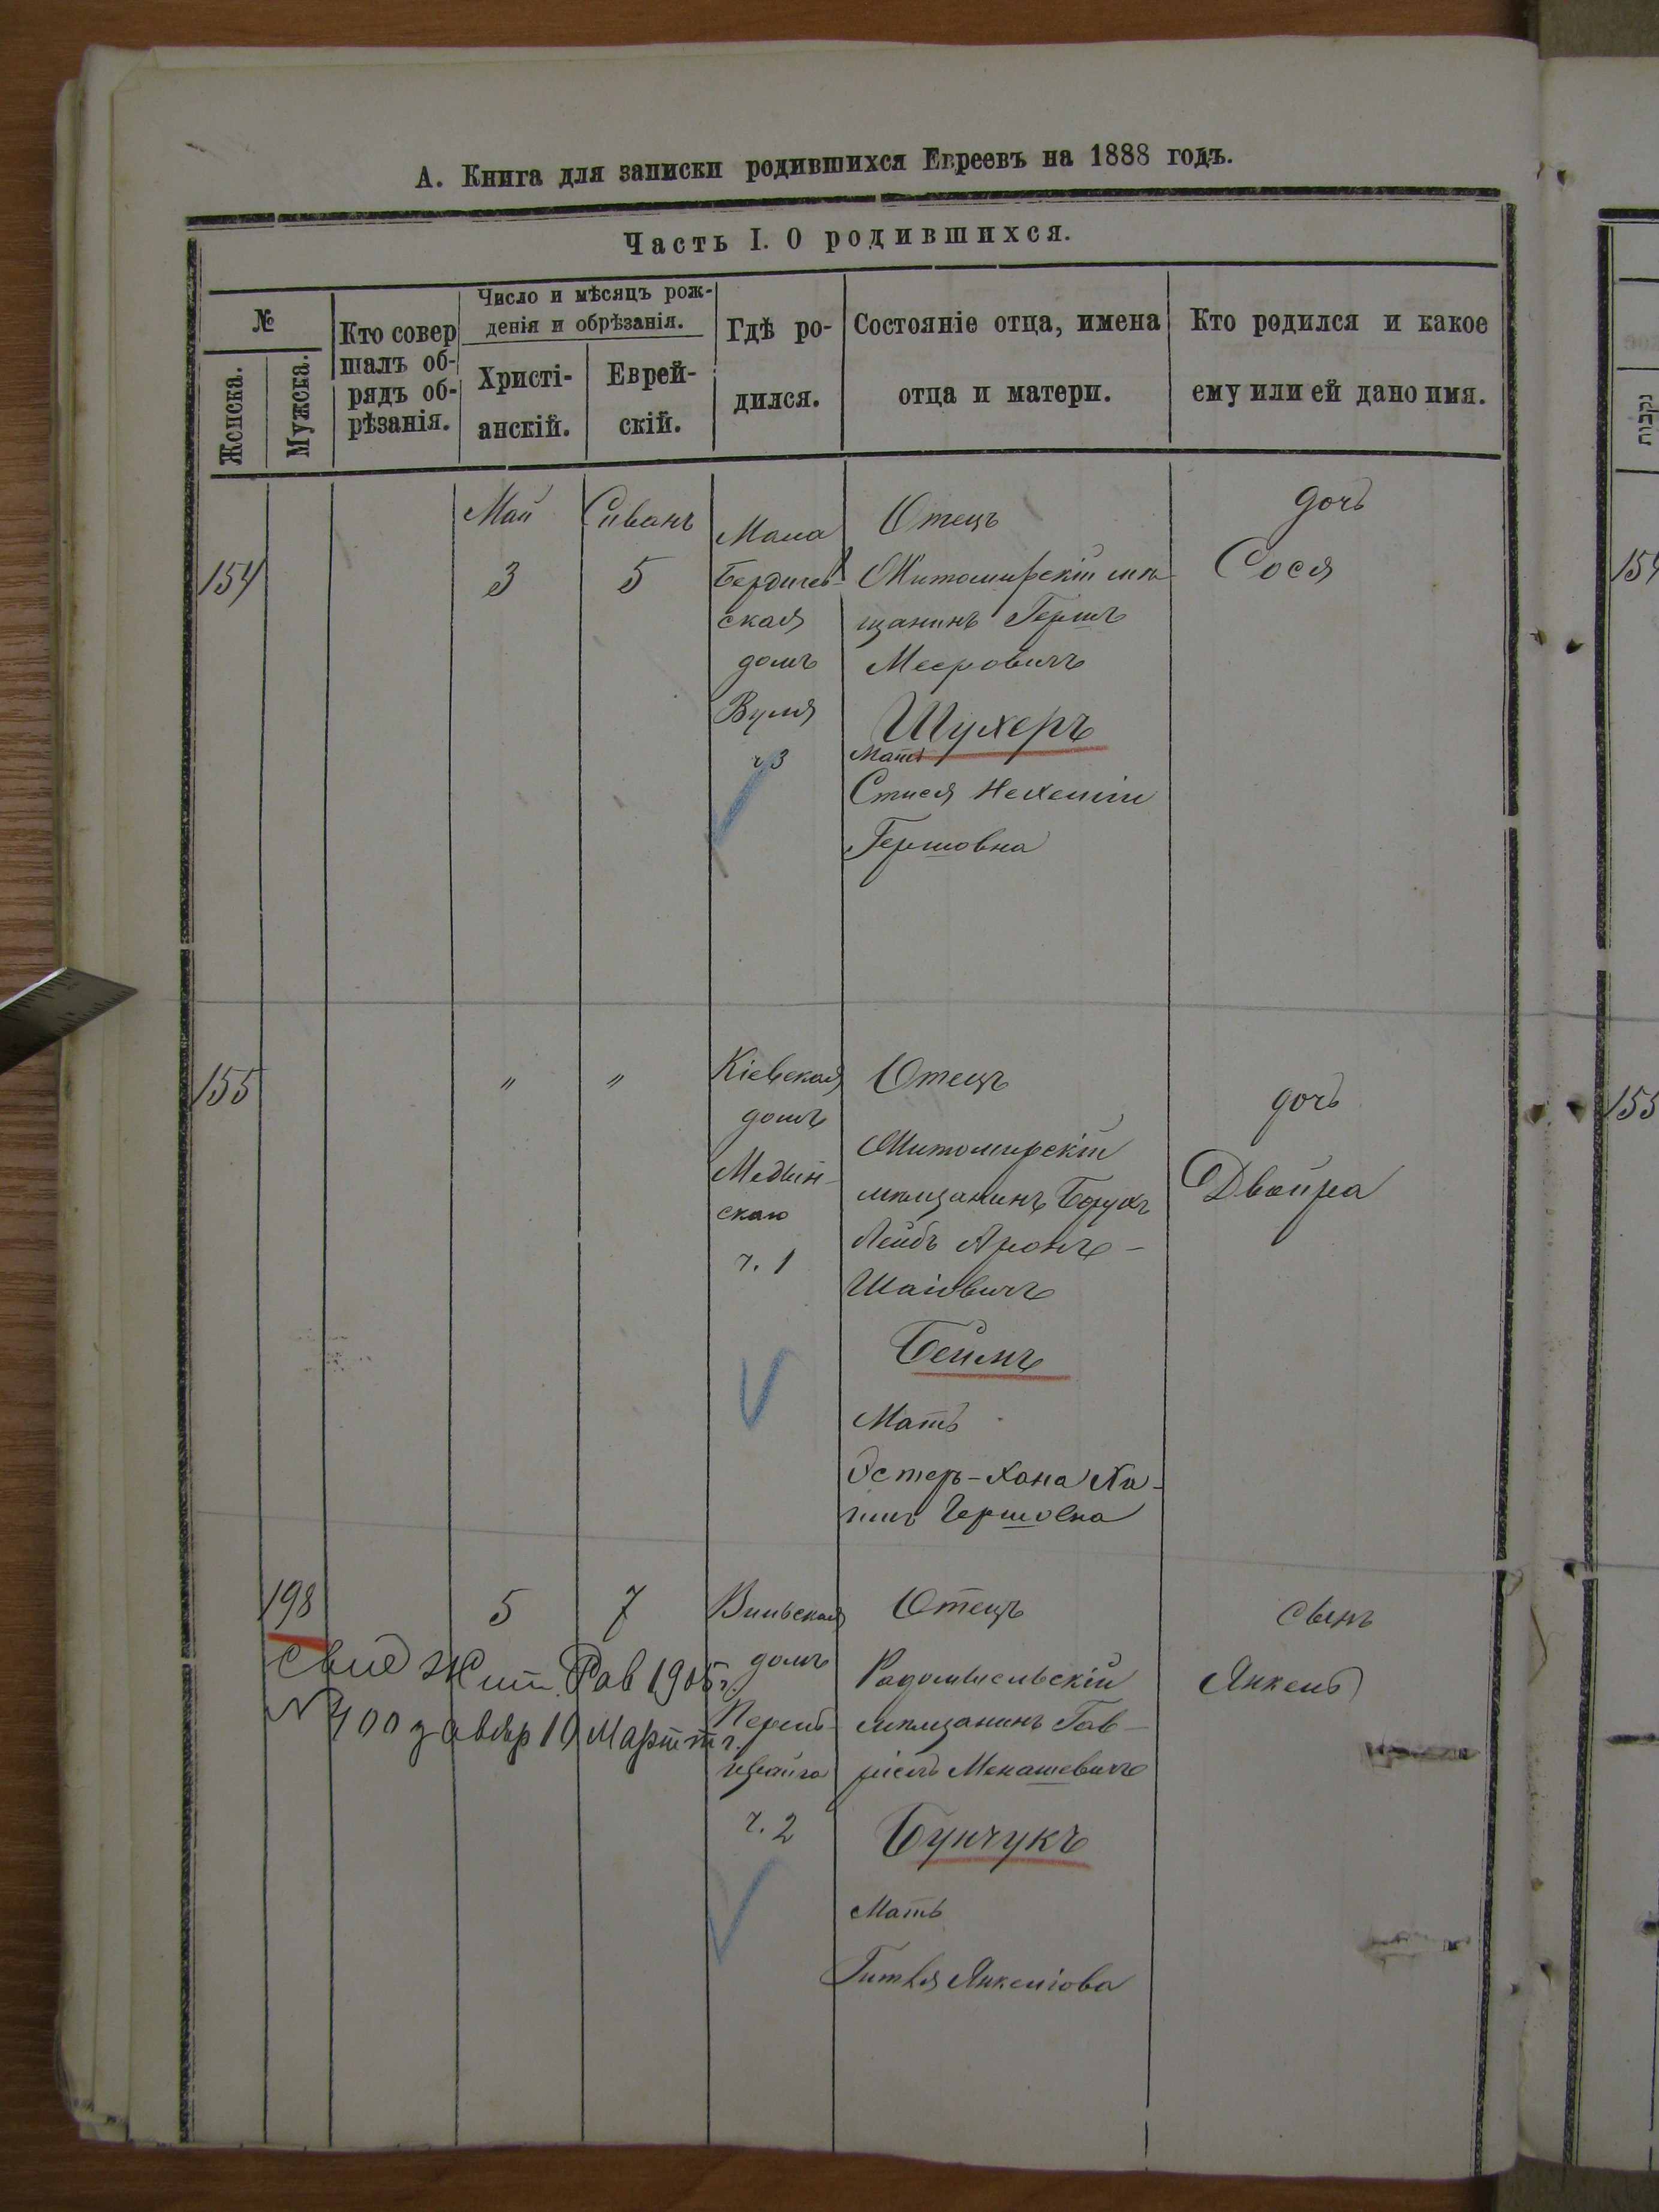 А. Книга для записки родившихся Евреевъ на 1888 годъ.
Часть I. О родившихся.
№
Женска.
Мужска.
Кто совер
шалъ об-
рядъ об-
рѣзанія.
Число и мѣсяцъ рож-
денія и обрѣзанія.
Христі-
анскій.
Еврей-
скій.
Гдѣ ро-
дился.
Состояніе отца, имена
отца и матери.
Кто родился и какое
ему или ей дано имя.
154
Май
3
Сиванъ
5
Мала
Бердичев-
ская
домъ
Вуля
ч 3
Отецъ
Житомирскій мѣ-
щанинъ Гершъ
Мееровичъ
Шухеръ
Мать
Стися Нехеміи
Гершовна
дочь
Сося
154
155
"
"
Кіевская
домъ
Медын-
скаго
ч. 1
Отецъ
Житомирскій
мѣщанинъ Борухъ
Лейбъ Аронъ-
Шаіовичъ
Беймъ
Мать
Эстеръ-Хана Ха-
имъ Гершовна
дочь
Двойра
155
198
5
7
Вильская
домъ
ч. 2
Отецъ
Радомысльскій
мѣщанинъ Гав-
ріель Менашевичъ
Бунчукъ
Мать
Гитля Янкеліова
сынъ
Янкель
Свид Жит. Рав 1905 г.
N 400 10 Март